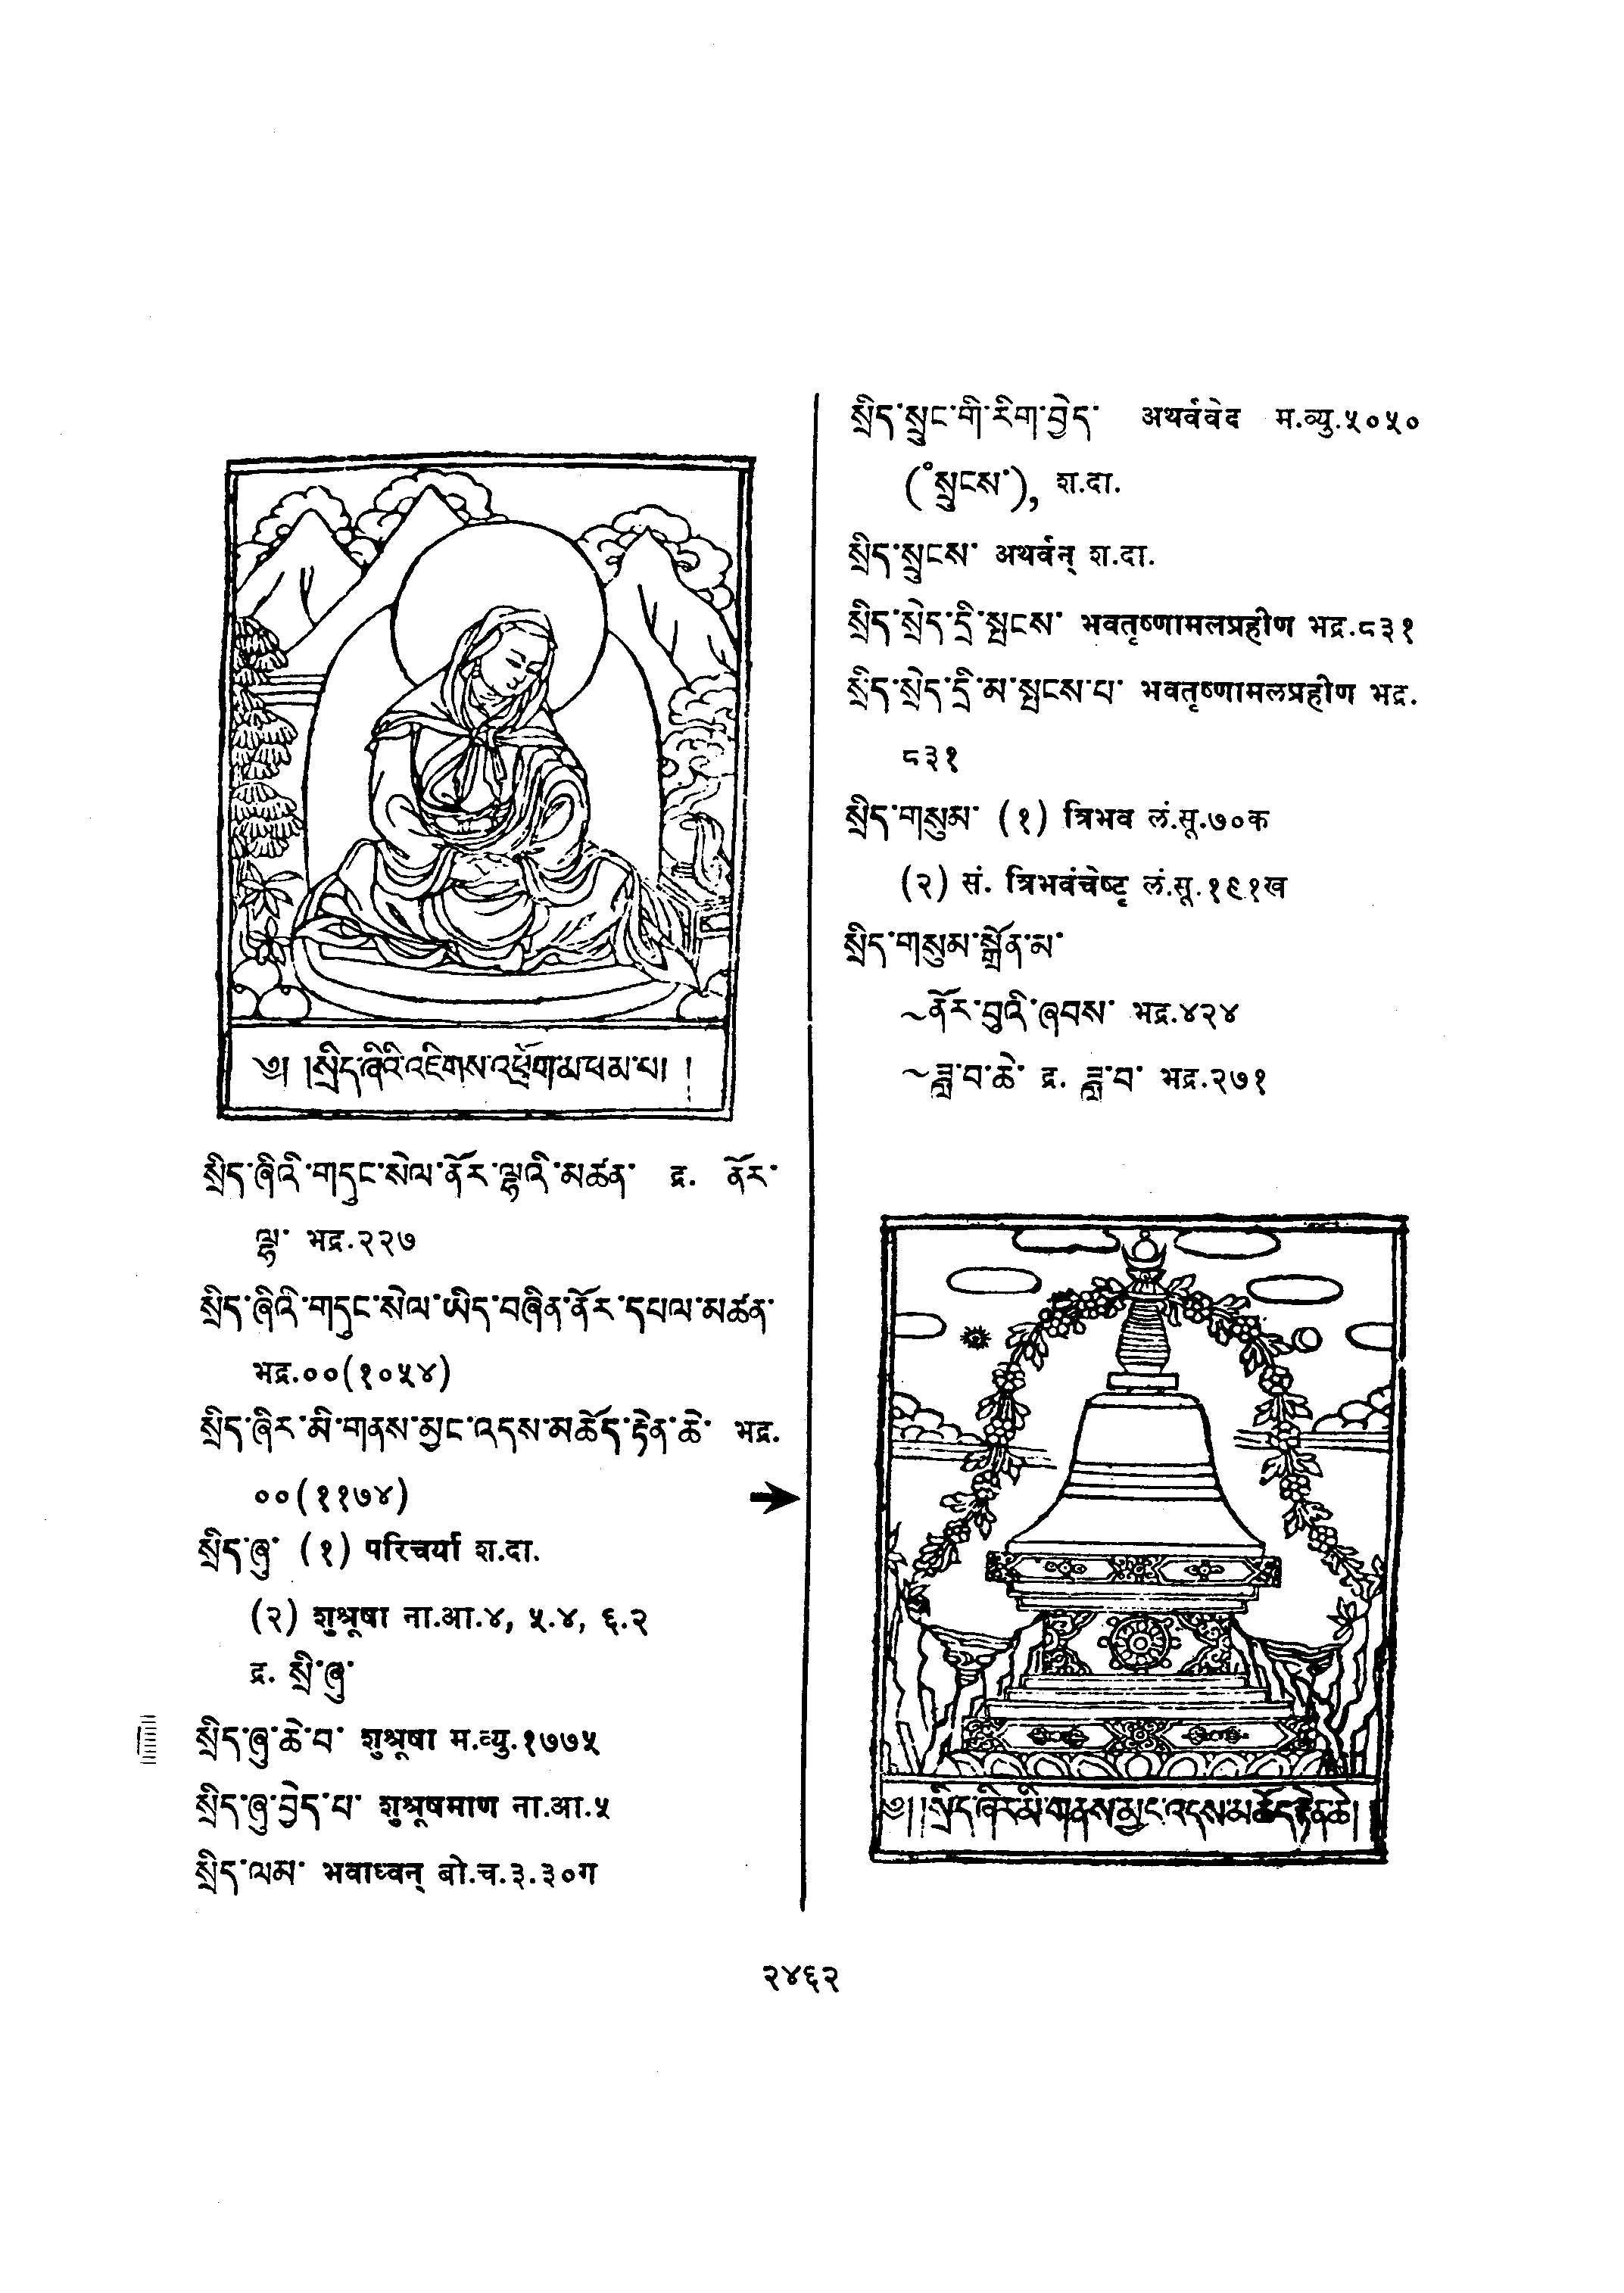 ༄། །སྲིད་ཞིའི་འཇིགས་འཕྲོག་མ་ཕམ་པ། །
སྲིད་ཞིའི་གདུང་སེལ་ནོར་ལྷའི་མཚན་ द्र. ནོར་
ལྷ་ भद्र.२२७
སྲིད་ཞིའི་གདུང་སེལ་ཡིད་བཞིན་ནོར་དཔལ་མཚན་
भद्र.००(१०५४)
སྲིད་ཞིར་མི་གནས་མྱང་འདས་མཆོད་རྟེན་ཆེ་ भद्र.
००(११७४)
སྲིད་ཞུ་ (१) परिचर्या श.दा.
(२) शुश्रूषा ना.आ.४, ५.४, ६.२
द्र. སྲི་ཞུ་
སྲིད་ཞུ་ཆེ་བ་ शुश्रूषा म.व्यु.१७७५
སྲིད་ཞུ་བྱེད་པ་ शुश्रूषमाण ना.आ.५
སྲིད་ལམ་ भवाध्वन् बो.च.३.३०ग
སྲིད་སྲུང་གི་རིག་བྱེད་ अथर्ववेद म.व्यु.५०५०
(°སྲུངས་), श.दा.
སྲིད་སྲུངས་ अथर्वन् श.दा.
སྲིད་སྲེད་དྲི་སྤངས་ भवतृष्णामलप्रहीण भद्र.८३१
སྲིད་སྲེད་དྲི་མ་སྤངས་པ་ भवतृष्णामलप्रहीण भद्र.
८३१
སྲིད་གསུམ་ (१) त्रिभव लं.सू.७०क
(२) सं. त्रिभवंचेष्ट लं.सू.१९१ख
སྲིད་གསུམ་སྒྲོན་མ་
~ནོར་བུའི་ཞབས་ भद्र.४२४
~ཟླ་བ་ཆེ་ द्र. ཟླ་བ་ भद्र.२७१
༄། །སྲིད་ཞིར་མི་གནས་མྱང་འདས་མཆོད་རྟེན་ཆེ། །
२४६२